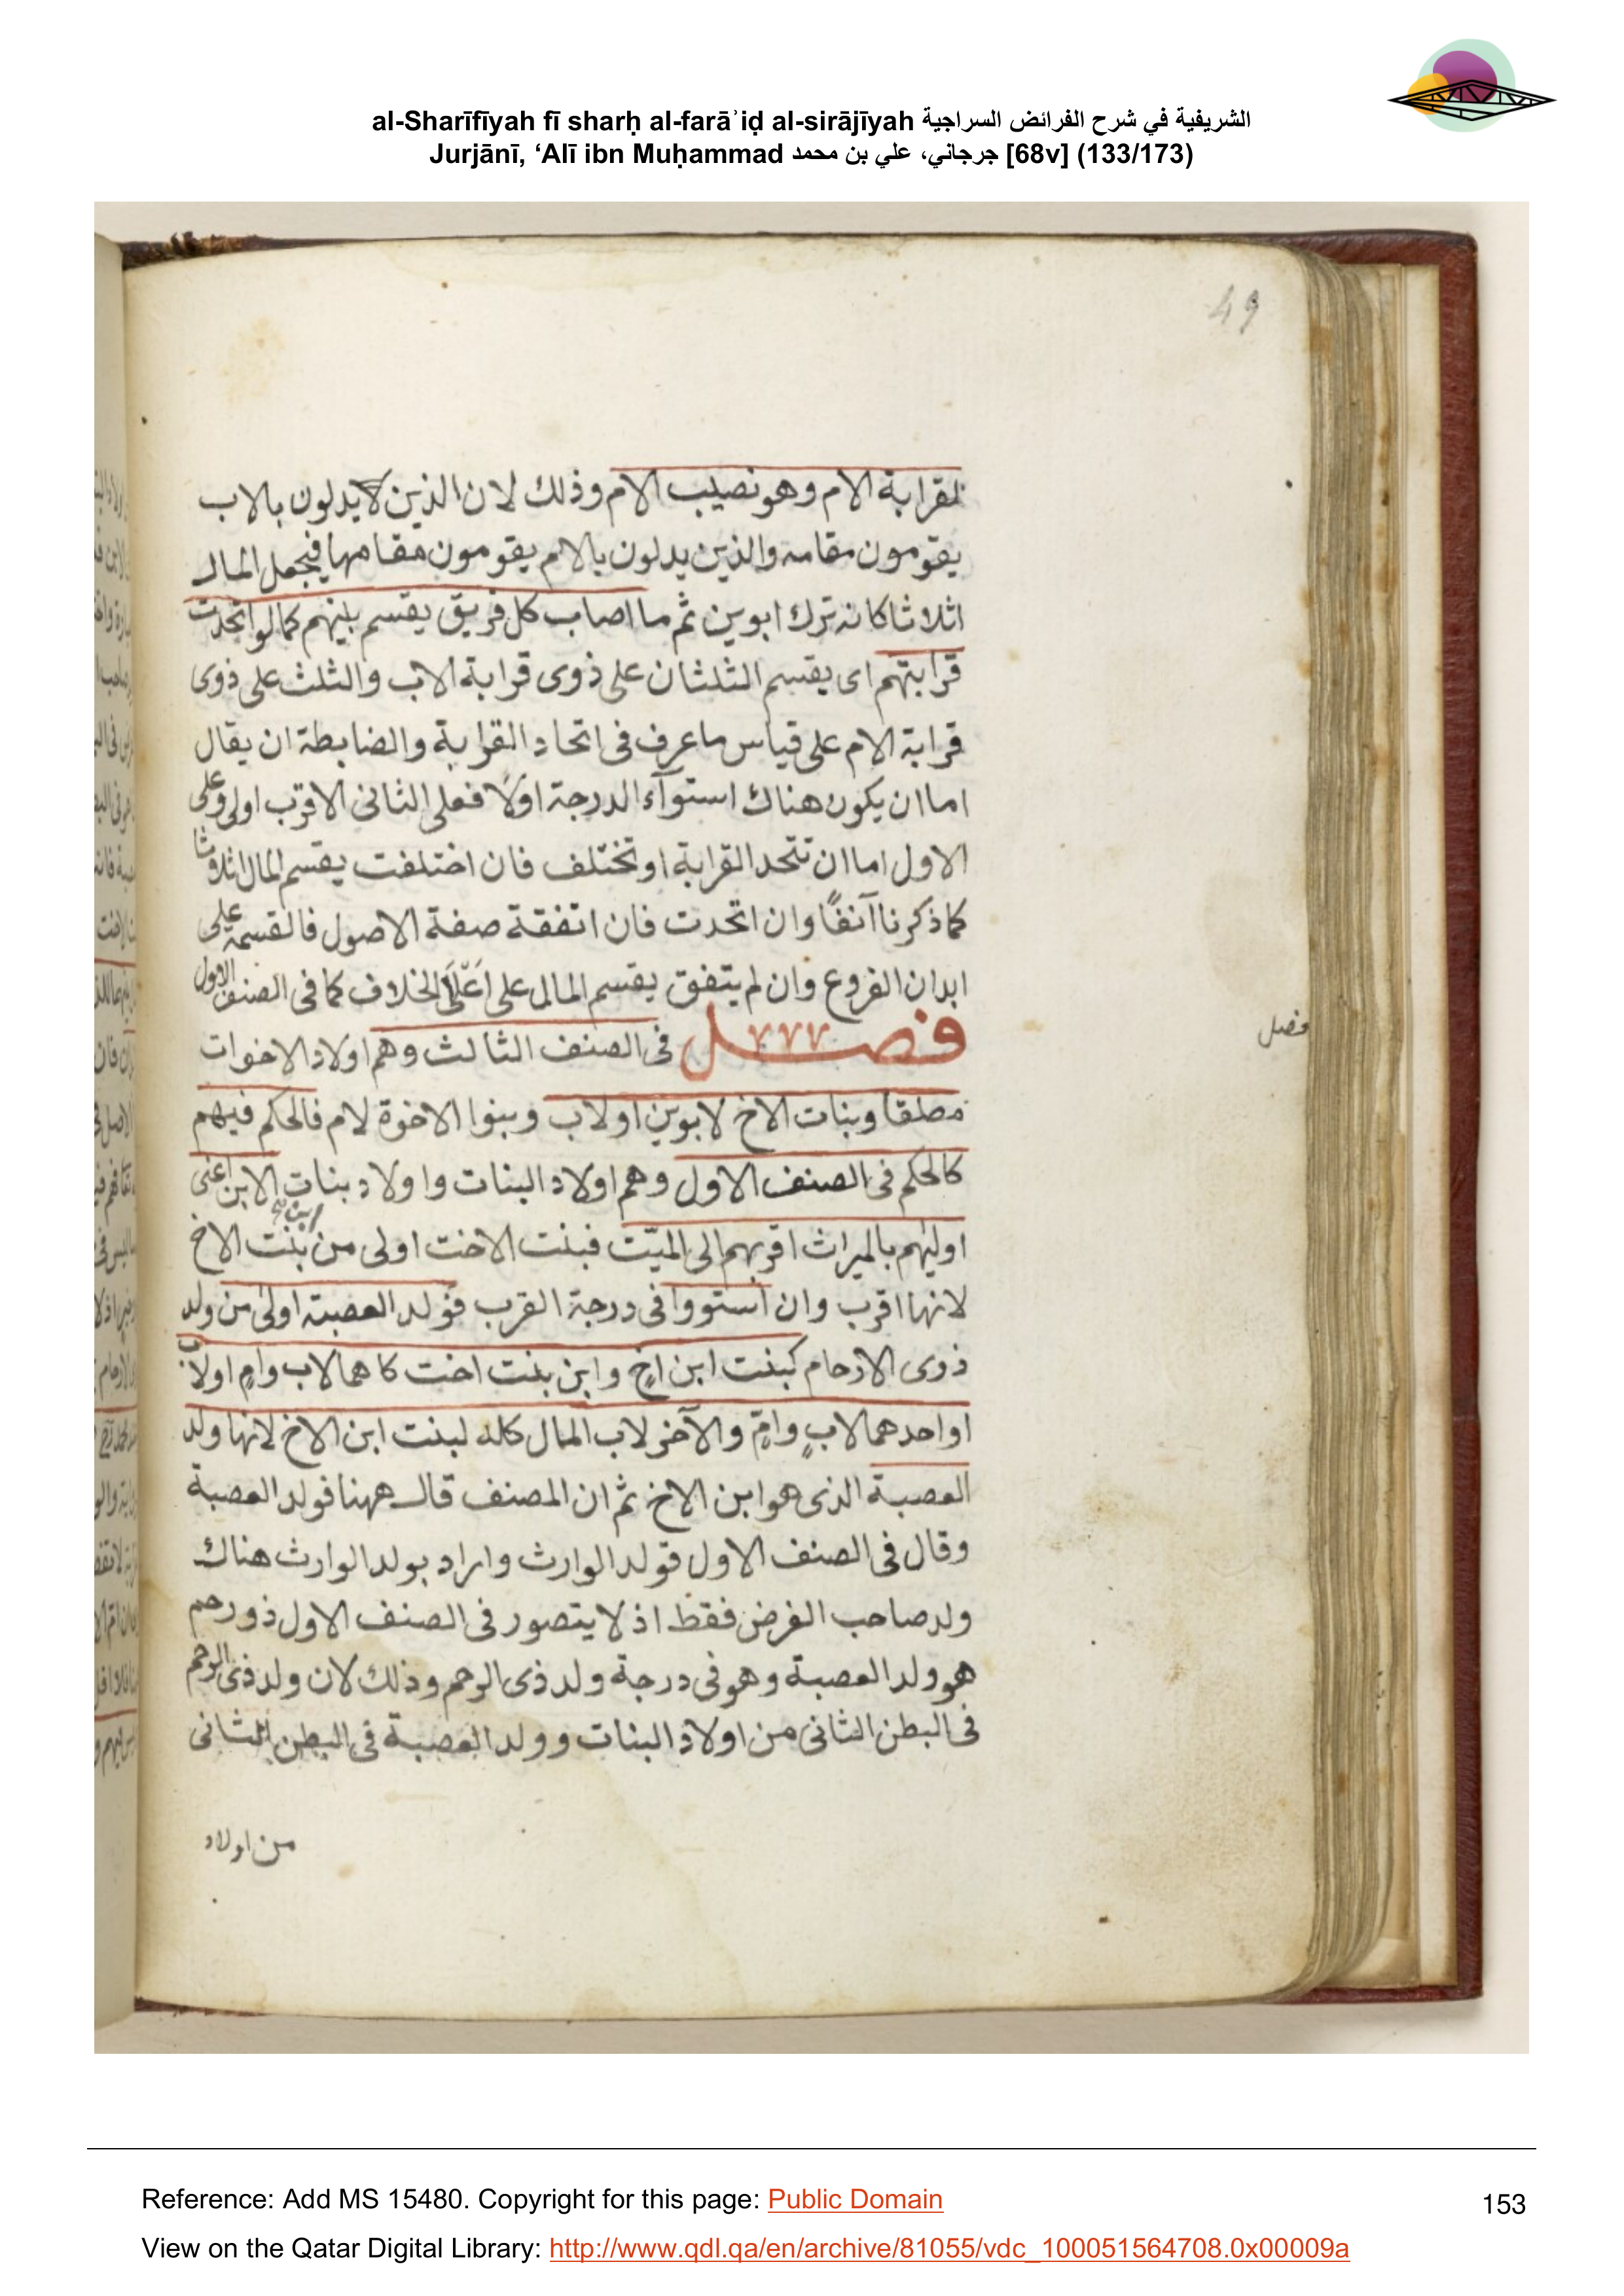 al-Sharīfīyah fī sharḥ al-farāʾiḍ al-sirājīyah الشريفية في شرح الفرائض السراجية
Jurjānī, ‘Alī ibn Muḥammad جرجاني، علي بن محمد [68v] (133/173)
49
لقرابة الام وهو نصيب الام وذلك لان الذين لا يدلون بالاب
يقومون مقامه والذين يدلون بالام يقومون مقامها فيجعل المال
اثلاثا كانه ترك ابوين ثم ما اصاب كل فريق يقسم بينهم كما لو اتحدت
قرابتهم اى يقسم الثلثان على ذوى قرابة الاب والثلث على ذوى
قرابة الام على قياس ما عرف فى اتحاد القرابة والضابطة ان يقال
اما ان يكون هناك استوآء الدرجة اولًا فعلى الثانى الاقرب اولى وعلى
الاول اما ان تتحد القرابة او تختلف فان اختلفت يقسم المال اثلاثا
كما ذكرنا آنفًا وان اتحدت فان اتفقة صفة الاصول فالقسمة على
ابدان الفروع وان لم يتفق يقسم المال على اعلى الخلاف كما فى الصنف الاول
فصل فى الصنف الثالث وهم اولاد الاخوات
فصل
مطلقا وبنات الاخ لابوين اولاب وبنوا الاخوة لام فالحكم فيهم
كالحكم فى الصنف الاول وهم اولاد البنات واولاد بنات الابن اعنى
اوليهم بالميراث اقربهم الى الميّت فبنت الاخت اولى من بنت الاخ
ابن صح
لانها اقرب وان استووا فى درجة القرب فولد العصبة اولى من ولد
ذوى الارحام كبنت ابن اخ وابن بنت اخت كا هما لاب وام اولاب
او احدهما لابٍ وامٍّ والآخر لاب المال كله لبنت ابن الاخ لانها ولد
العصبة الذى هو ابن الاخ ثم ان المصنف قال ههنا فولد العصبة
وقال فى الصنف الاول قولد الوارث واراد بولد الوارث هناك
ولد صاحب الفرض فقط اذ لا يتصور فى الصنف الاول ذو رحم
هو ولد العصبة وهو فى درجة ولد ذى الرحم وذلك لان ولد ذى الرحم
فى البطن الثانى من اولاد البنات وولد العصبة فى البطن الثانى
من اولاد
Reference: Add MS 15480. Copyright for this page: Public Domain
153
View on the Qatar Digital Library: http://www.qdl.qa/en/archive/81055/vdc_100051564708.0x00009a